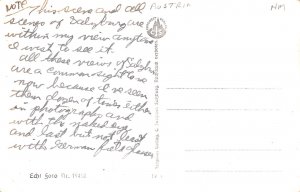 NOTE This scene and all AUSTRIA NM
scenes of Salzburg are
within my view anytime
I want to see it.
All these views of Salzburg
are a common sight to me
now because I've seen
them dozens of times either
in photography and
with the naked eye
and last but not least
with German field glasses
Echt Foto Nr.